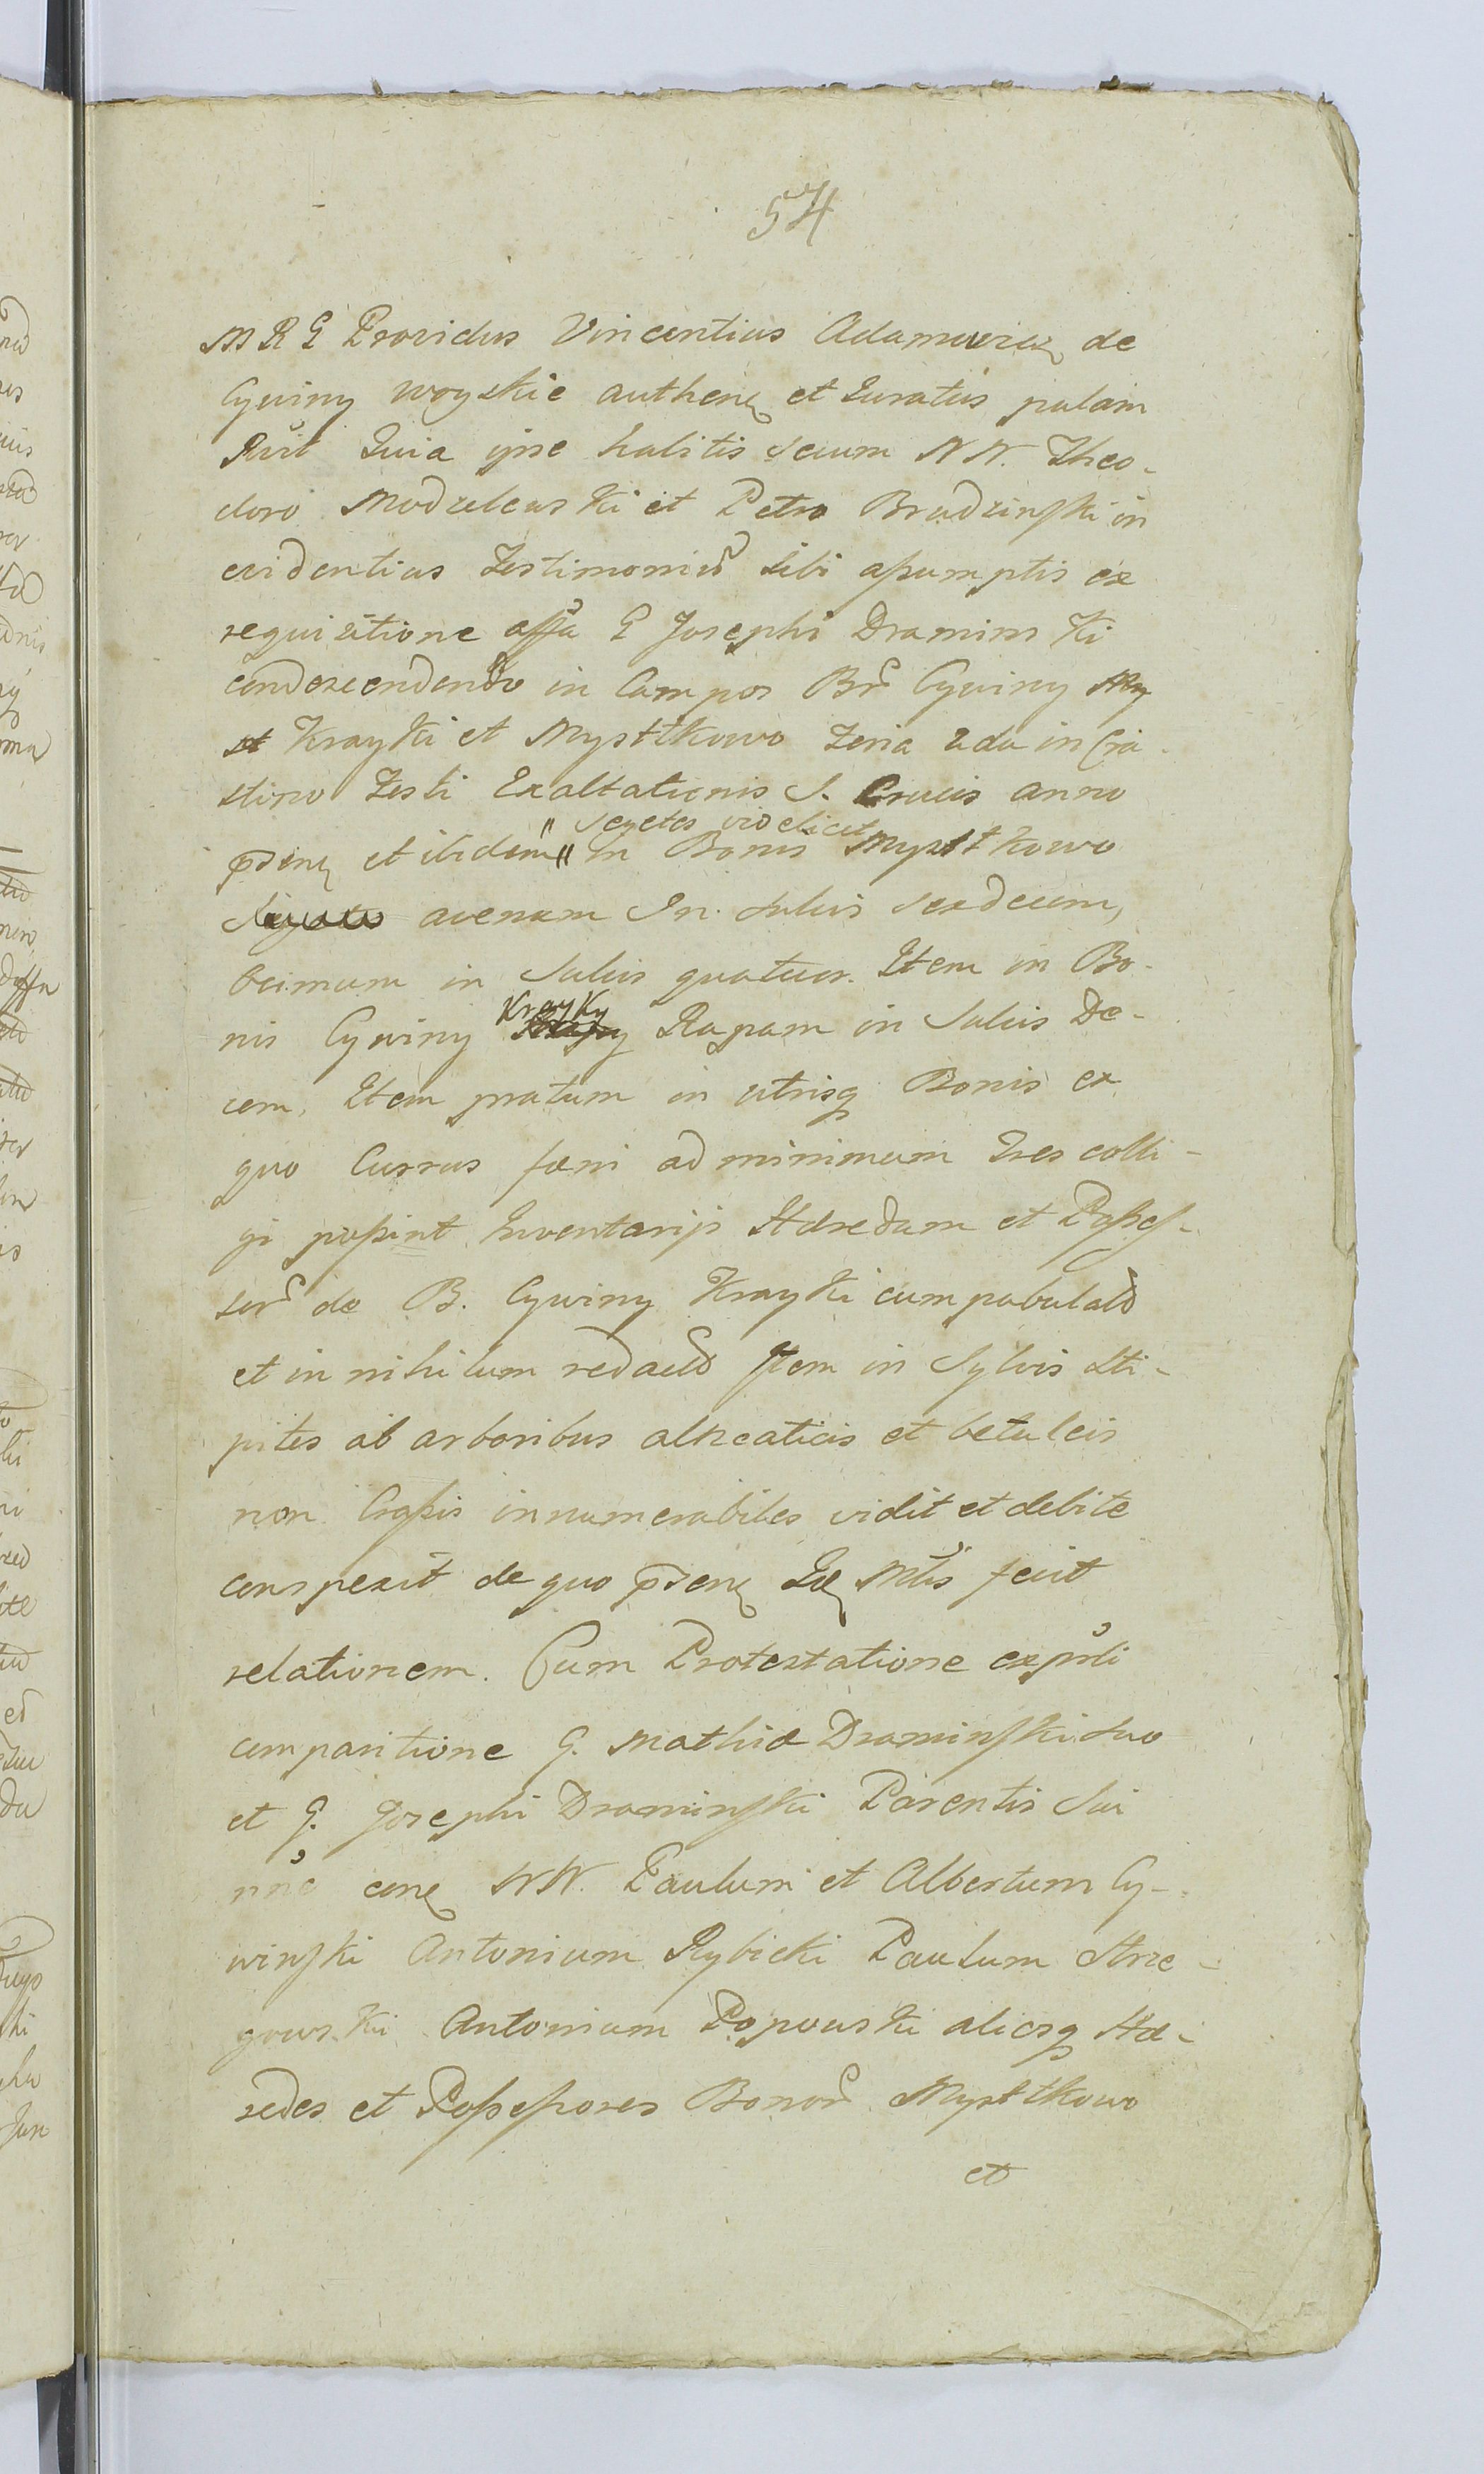 54
M R G Providus Vincentius Adamowicz de
Cywiny woyskie authen et Juratus palam
Rūt Quia ipse habitis secum N N. Theo-
doro Modzelewski et Petro Brudzinski in
evidentius Testimoniū sibi assumptis ex
requisitione affa G Josephi Dramins ki
condescendendo in Campos Br Cywiny
Krayki et Mysttkowo Feria 2da in Cra-
stino Festi Exaltationis S. Crucis anno
segetes videlicet
psen et ibidem in Bonis Mysttkowo
avenam In sulcis sexdecim,
in sulcis quatuor. Item in Bo-
Krayky
nis Cywiny Rapam in Sulcis De-
cem, Item pratum in utrisq Bonis ex
quo Currus fæni ad minimum Tres colli-
gi possint Inventarijs Hæredum et Posses-
sor de B. Cywiny Krayki cum pabulatū
et in nihilum redactū Item in Sylvis sti-
pites ab arboribus et betuleis
non Crassis innumerabiles vidit et debite
conspexit de quo psen Mtis fecit
relationem. Cum Protestatione
comparitione G. Mathiæ Draminski suo
et G. Josephi Draminski Parentis sui
nne con N N. Paulum et Albertum Cy-
winski Antonium Rybicki Paulum Strze-
gows ki Antonium Popowski aliosq Hæ-
redes et Possessores Bonor Mysttkowo
et